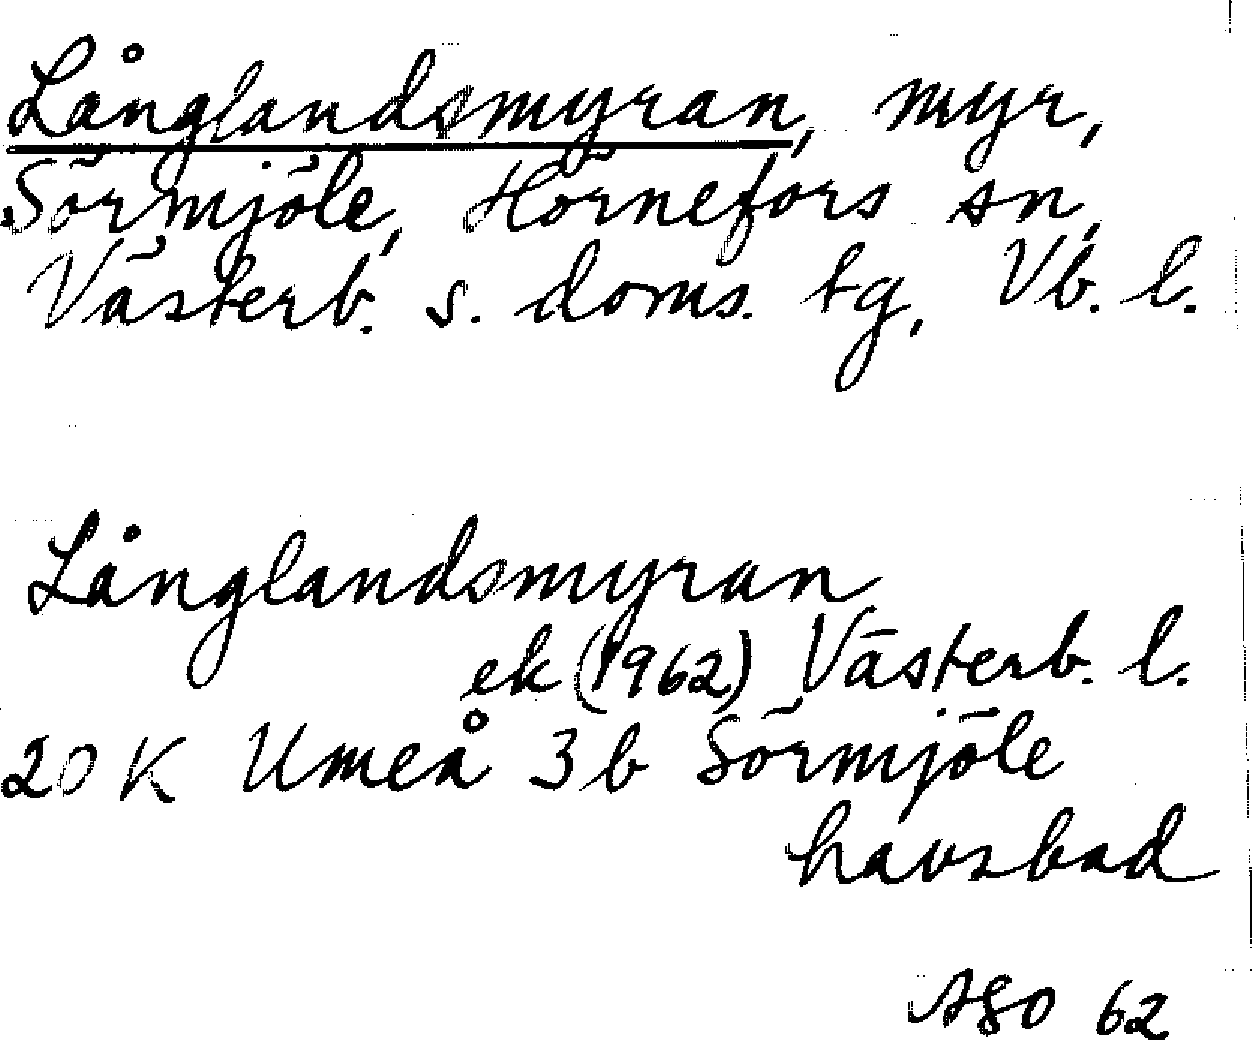 Långlandsmyran, myr,
Sörmjöle, Hörnefors sn,
Västerb. s. doms. tg, Vb. l.
Långlandsmyran
ek (1962) Västerb. l.
20 K Umeå 3 b Sörmjöle
havsbad
62